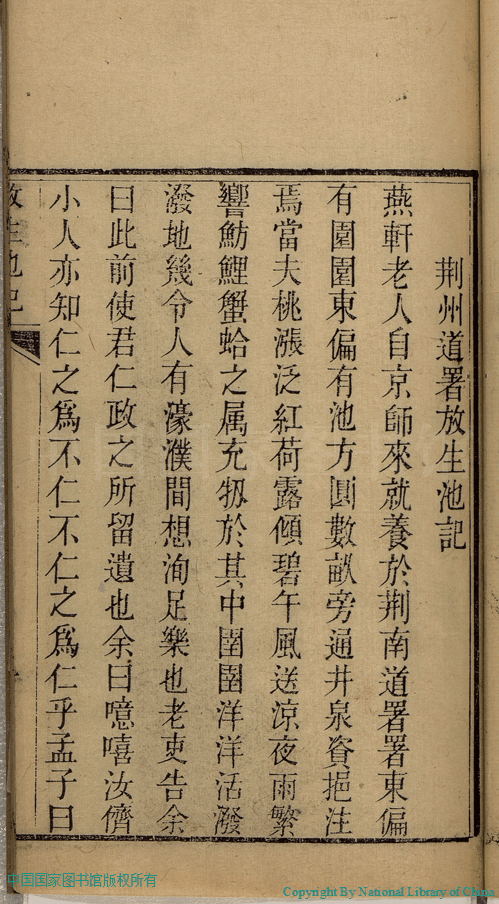 荆州道署放生池記
燕軒老人自京師來就養於荆南道署署東偏
有園園東偏有池方圓數畝旁通井泉資挹注
焉當夫桃漲泛紅荷露傾碧午風送涼夜雨繁
響魴鯉蟹蛤之属充牣於其中圉圉洋洋活潑
潑地幾令人有濠濮間想洵足樂也老吏告余
曰此前使君仁政之所留遺也余曰噫嘻汝儕
小人亦知仁之爲不仁不仁之爲仁乎孟子曰
放生池記
中国国家图书馆版权所有
Copyright By National Library of China